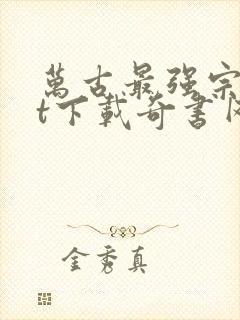 萬古最强宗
t下載奇書网
金秀真